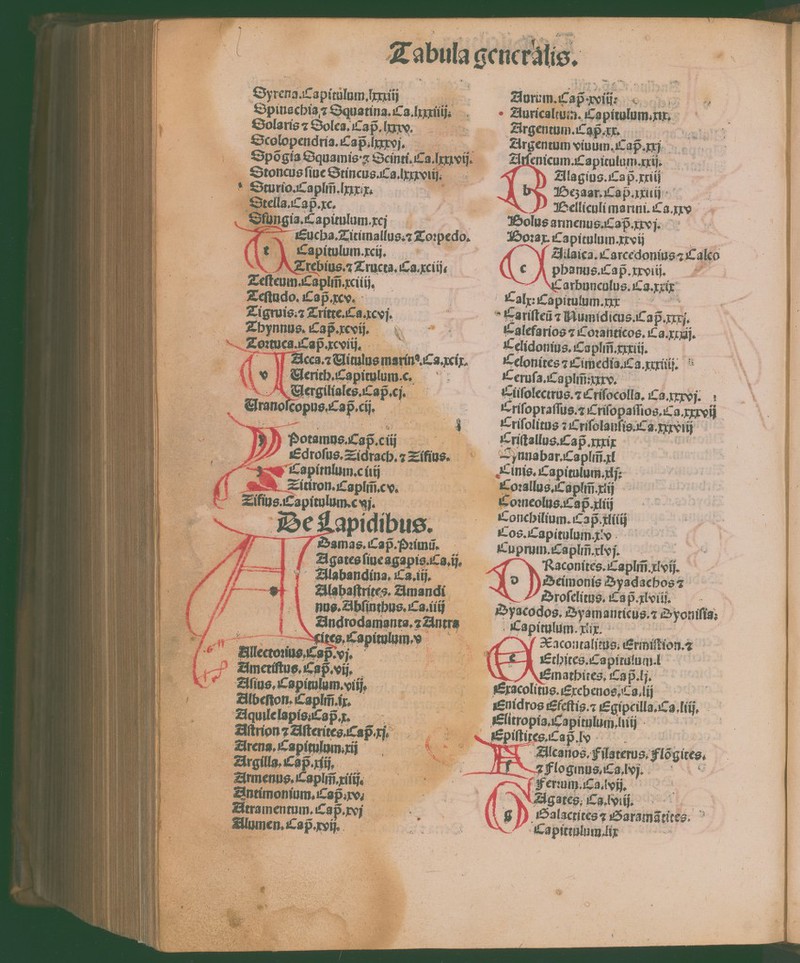 Tabula generalis.
Syrena. Capitulum. lxxxiij
Spinachia ⁊ Squatina. Ca. lxxxiiij.
Solaris ⁊ Solea. Cap̄. lxxxv.
Scolopendria. Cap̄. lxxxvj.
Spōgia Squamis ⁊ Scinti. Ca. lxxxvij.
Stoncus siue Stincus. Ca. lxxxviij.
Sturio. Caplm̄. lxxxix.
Stella. Cap̄. xc.
Sfungia. Capitulum. xcj
t Eucha. Titimallus. ⁊ Torpedo.
Capitulum. xcij.
Trebius. ⁊ Tructa. Ca. xciij.
Testeum. Caplm̄. xciiij.
Testudo. Cap̄. xcv.
Tigruis. ⁊ Tritte. Ca. xcvj.
Thynnus. Cap̄. xcvij.
Tortuca. Cap̄. xcviij.
v Acca. ⁊ Uitulus marinꝰ. Ca. xcix.
Uerich. Capitulum. c.
Uergiliales. Cap̄. cj.
Uranoscopus. Cap̄. cij.
y Potamus. Cap̄. ciij
Edrosus. Zidrach. ⁊ Zifius.
Capitulum. ciiij
Zitiron. Caplm̄. cv.
Zifius. Capitulum. cvj.
De Lapidibus.
A Damas. Cap̄. Primū.
Agates siue agapis. Ca. ij.
Alabandina. Ca. iij.
Alabastrites. Amandi
nus. Absinthus. Ca. iiij
Androdamanta. ⁊ Antra
cites. Capitulum. v
Allectorius. Cap̄. vj.
Ametistus. Cap̄. vij.
Asius. Capitulum. viij.
Albeston. Caplm̄. ix.
Aquile lapis. Cap̄. x.
Astrion ⁊ Asterites. Cap̄. xj.
Arena. Capitulum. xij
Argilla. Cap̄. xiij.
Armenus. Caplm̄. xiiij.
Antimonium. Cap̄. xv.
Atramentum. Cap̄. xvj
Alumen. Cap̄. xvij.
Aurum. Cap̄. xviij.
Auricalcum. Capitulum. xix.
Argentum. Cap̄. xx.
Argentum viuum. Cap̄. xxj
Arsenicum. Capitulum. xxij.
b Alagius. Cap̄. xxiij
Bezaar. Cap̄. xxiiij
Belliculi marini. Ca. xxv
Bolus armenus. Cap̄. xxvj.
Borax. Capitulum. xxvij
c Alaica. Carcedonius ⁊ Calco
phanus. Cap̄. xxviij.
Carbunculus. Ca. xxix
Calx. Capitulum. xxx
Caristeū ⁊ Numidicus. Cap̄. xxxj.
Calefarios ⁊ Coranticos. Ca. xxxij.
Celidonius. Caplm̄. xxxiij.
Celonites ⁊ Cimedia. Ca. xxxiiij.
Cerusa. Caplm̄. xxxv.
Crisolectrus. ⁊ Crisocolla. Ca. xxxvj.
Crisoprassus. ⁊ Crisopassios. Ca. xxxvij
Crisolitus ⁊ Crisolansis. Ca. xxxviij
Cristallus. Cap̄. xxxix
Cynnabar. Caplm̄. xl
Cinis. Capitulum. xlj.
Corallus. Caplm̄. xlij
Corneolus. Cap̄. xliij
Conchilium. Cap̄. xliiij
Cos. Capitulum. xlv
Cuprum. Caplm̄. xlvj.
D Raconites. Caplm̄. xlvij.
Deimonis Dyadochos ⁊
Droselitus. Cap̄. xlviii.
Dyacodos. Dyamanticus. ⁊ Dyonisia.
Capitulum. xlix.
e Xacontalitus. Ermistion. ⁊
Ethites. Capitulum. l
Emathites. Cap̄. lj.
Exacolitus. Exebenos. Ca. lij
Enidros Efestis. ⁊ Egipcilla. Ca. liij.
Elitropia. Capitulum. liiij
Epistites. Cap̄. lv
f Alcanos. Filaterus. Flōgites.
⁊ Floginus. Ca. lvj.
Ferrum. Ca. lvij.
g Agates. Ca. lviij.
Galactites ⁊ Garamātites.
Capitulum. lix